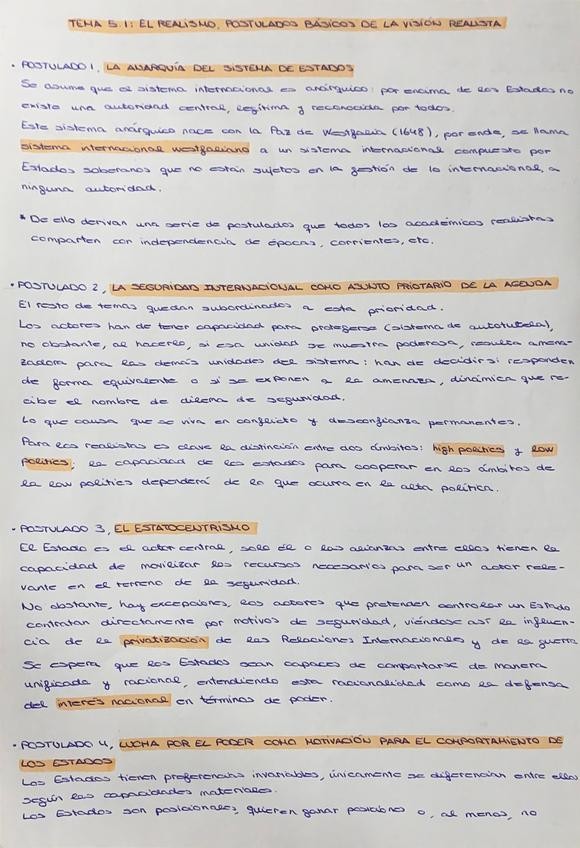 TEMA 5.1: EL REALISMO, POSTULADOS BÁSICOS DE LA VISIÓN REALISTA
• POSTULADO 1, LA ANARQUÍA DEL SISTEMA DE ESTADOS
Se asume que el sistema internacional es anárquico: por encima de los Estados no
existe una autoridad central, legítima y reconocida por todos.
Este sistema anárquico nace con la Paz de Westfalia (1648), por ende, se llama
sistema internacional westfaliano a un sistema internacional compuesto por
Estados soberanos que no están sujetos en la gestión de lo internacional, a
ninguna autoridad.
* De ello derivan una serie de postulados que todos los académicos realistas
comparten con independencia de épocas, corrientes, etc.
• POSTULADO 2, LA SEGURIDAD INTERNACIONAL COMO ASUNTO PRIOTARIO DE LA AGENDA
El resto de temas quedan subordinados a esta prioridad.
Los actores han de tener capacidad para protegerse (sistema de autotutela),
no obstante, al hacerlo, si esa unidad se muestra poderosa, resulta amena-
zadora para las demás unidades del sistema: han de decidir si responden
de forma equivalente o si se exponen a la amenaza, dinámica que re-
cibe el nombre de dilema de seguridad.
Lo que causa que se viva en conflicto y desconfianza permanentes.
Para los realistas es clave la distinción entre dos ámbitos: high politics y low
politics, la capacidad de los estados para cooperar en los ámbitos de
la low politics dependerá de lo que ocurra en la alta política.
• POSTULADO 3, EL ESTATOCENTRISMO
El Estado es el actor central, solo él o las alianzas entre ellos tienen la
capacidad de movilizar los recursos necesarios para ser un actor rele-
vante en el terreno de la seguridad.
No obstante, hay excepciones, los actores que pretenden controlar un Estado
contratan directamente por motivos de seguridad, viéndose así la influen-
cia de la privatización de las Relaciones Internacionales y de la guerra
Se espera que los Estados sean capaces de comportarse de manera
unificada y racional, entendiendo esta racionalidad como la defensa
del interés nacional en términos de poder.
• POSTULADO 4, LUCHA POR EL PODER COMO MOTIVACIÓN PARA EL COMPORTAMIENTO DE
LOS ESTADOS
Los Estados tienen preferencias invariables, únicamente se diferencian entre ellos
según las capacidades materiales.
Los Estados son posicionales, quieren ganar posiciones o, al menos, no